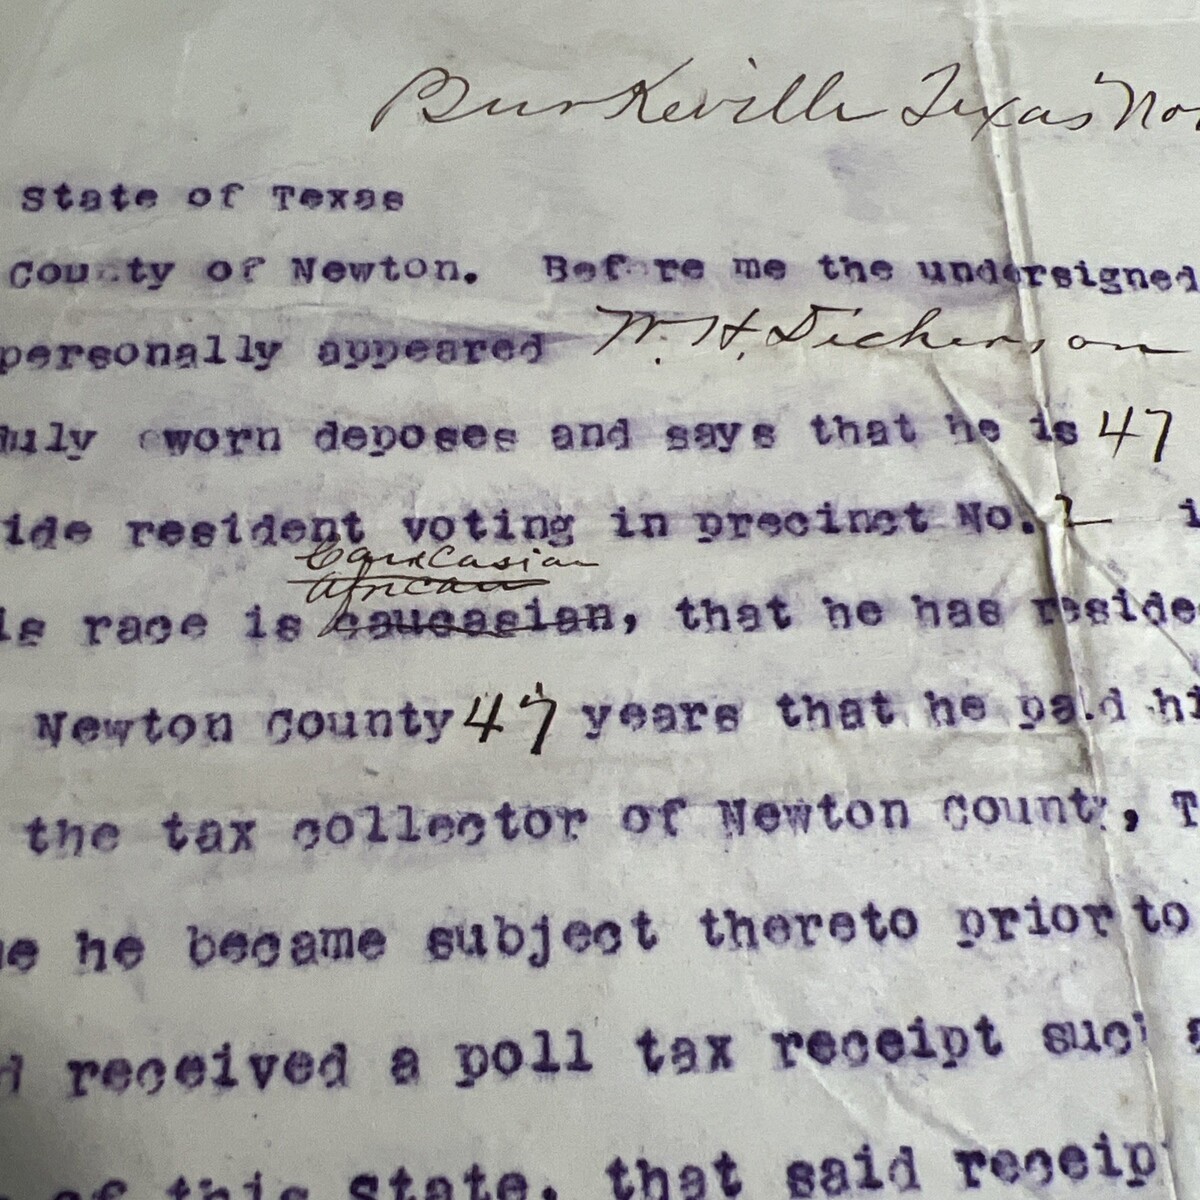 Burkeville Texas Nov
State of Texas
County of Newton. Before me the undersigned
personally appeared W. H. Dickerson
duly sworn deposes and says that he is 47
ide resident voting in precinct No. 2 i
Caucasian
African
is race is caucasian, that he has reside
Newton County 47 years that he paid hi
the tax collector of Newton county, T
he became subject thereto prior to
d received a poll tax receipt such a
of this state, that said receip